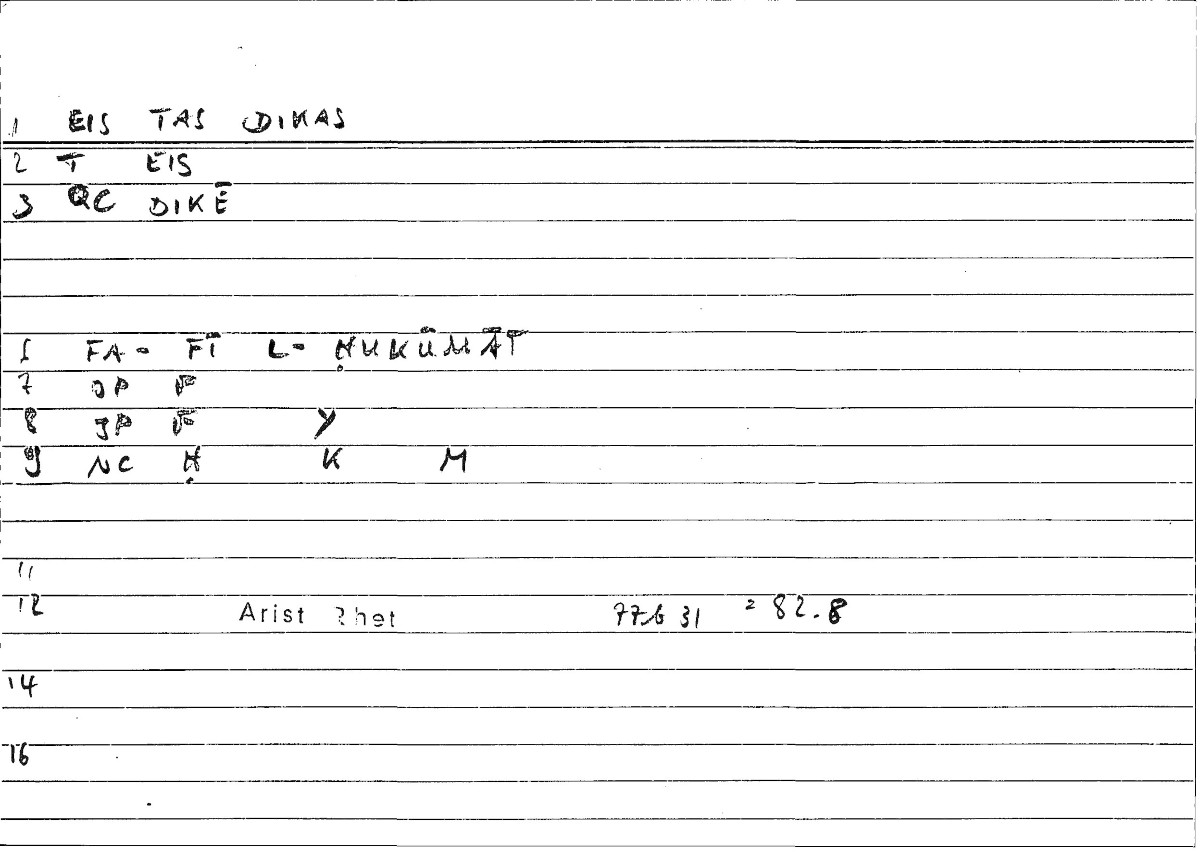 1 EIS TAS DIKAS
2 T EIS
3 QC DIKĒ
FA- FĪ L- ḤUKŪMĀT
7 JP F
8 JP F Y
9 NC Ḥ K M
11
12 Arist Rhet 77b 31 = 82.8
14
16